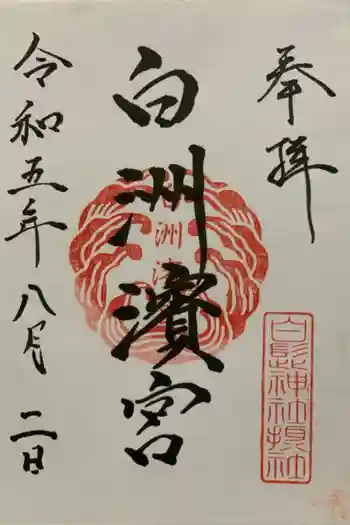 奉拝
白髭神社摂社
白洲濱宮
洲
令和五年八月二日